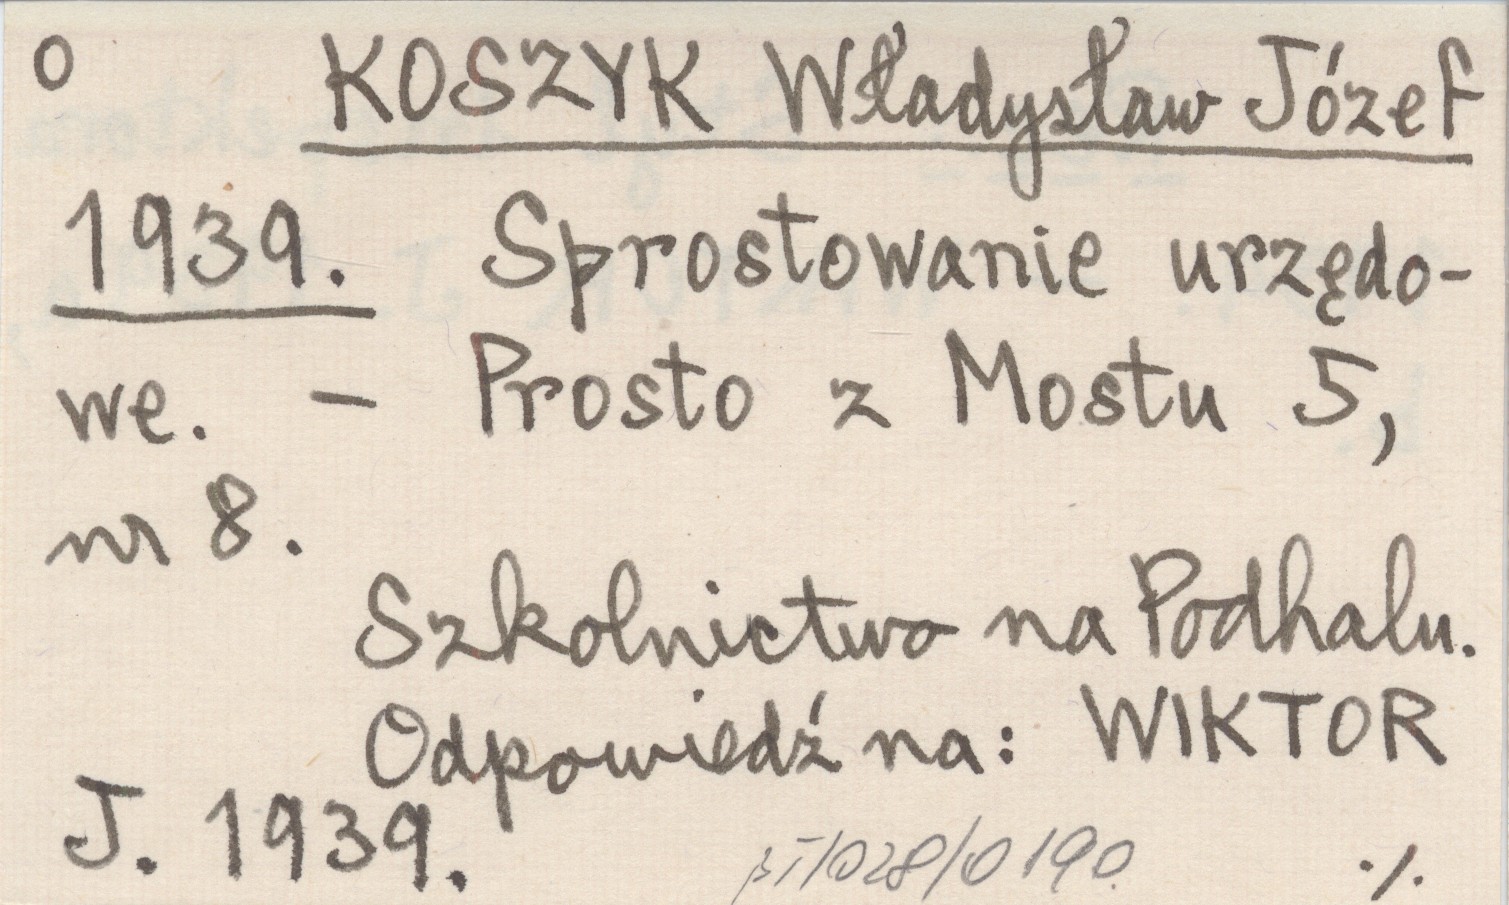 O KOSZYK Władysław Józef
1939. Sprostowanie urzędo-
we. – Prosto z Mostu 5,
nr 8.
Szkolnictwo na Podhalu.
Odpowiedź na: WIKTOR
J. 1939.
/028/0190 ./.